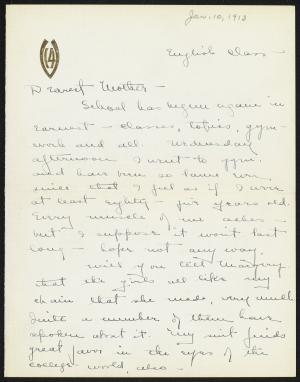 Jan. 10, 1913
English Class -
Dearest Mother -
School has begun again in
earnest - classes, topics, gym-
work and all. Wednesday
afternoon I went to gym.
and have been so lame ever
since that I feel as if I were
at least eighty - five years old.
Every muscle of me aches -
but I suppose it won't last
long - hope not any way.
Will you tell Margery
that the girls all like my
chain that she made, very much.
Quite a number of them have
spoken about it. My suit finds
great favor in the eyes of the
college world, also -